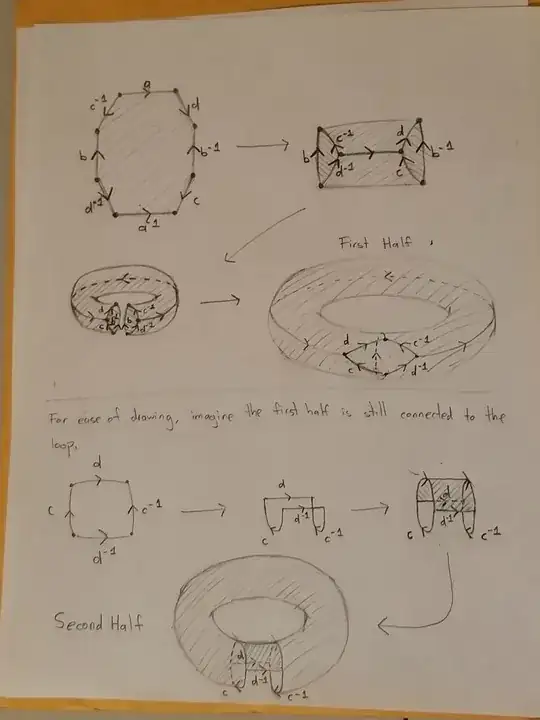 a
c⁻¹ d
b b⁻¹
d⁻¹ c
a⁻¹
c⁻¹ d
b b⁻¹
d⁻¹ c
First Half
d c⁻¹
c b b d⁻¹
d c⁻¹
c d⁻¹
For ease of drawing, imagine the first half is still connected to the
loop.
d
c c⁻¹
d⁻¹
d
d⁻¹
c c⁻¹
d
d⁻¹
c c⁻¹
Second Half
d
d⁻¹
c c⁻¹